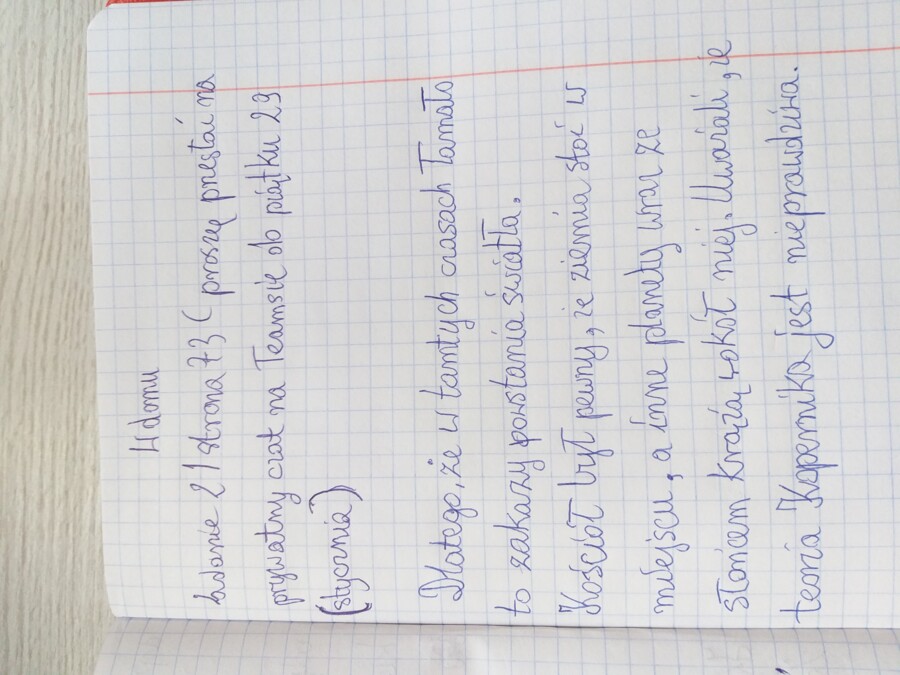 W domu
zadanie 2 / strona 73 ( proszę przesłać na
prywatny czat na Teamsie do piątku 29
(stycznia)
Dlatego, że w tamtych czasach Tamato
to zakazy powstania światła.
Kościół był pewny, że ziemia stoi w
miejscu, a inne planety wraz ze
słońcem krążą wokół niej. Uważali, że
teoria Kopernika jest nieprawdziwa.